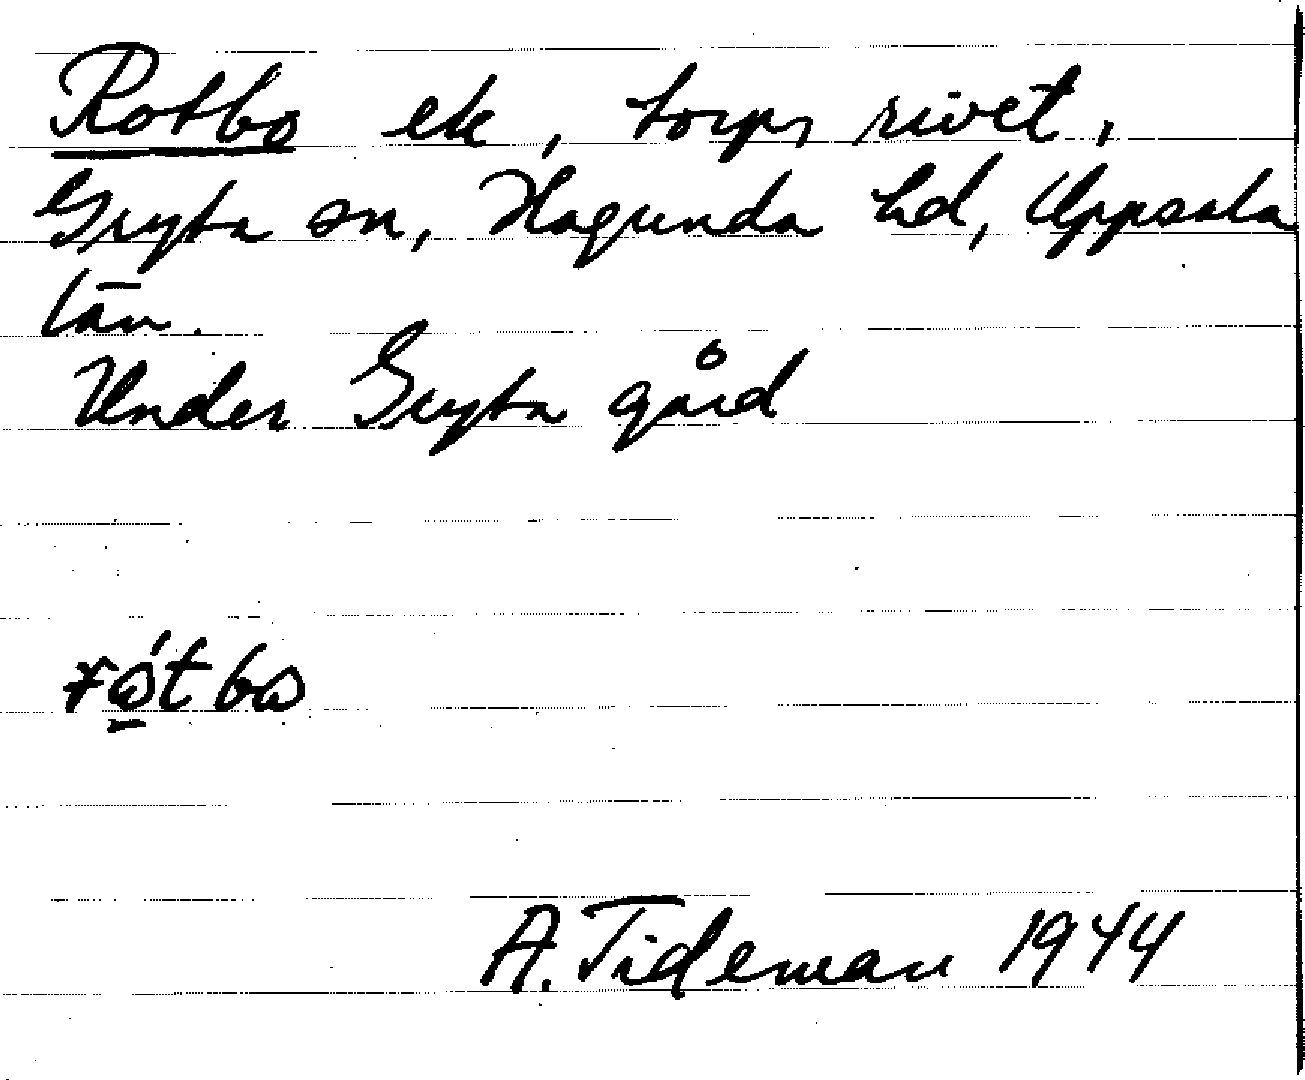 Rotbo ek, torp, rivet,
Gryta sn, Hagunda hd, Uppsala
län.
Under Gryta gård
rώ̱tbω
A. Tideman 1944